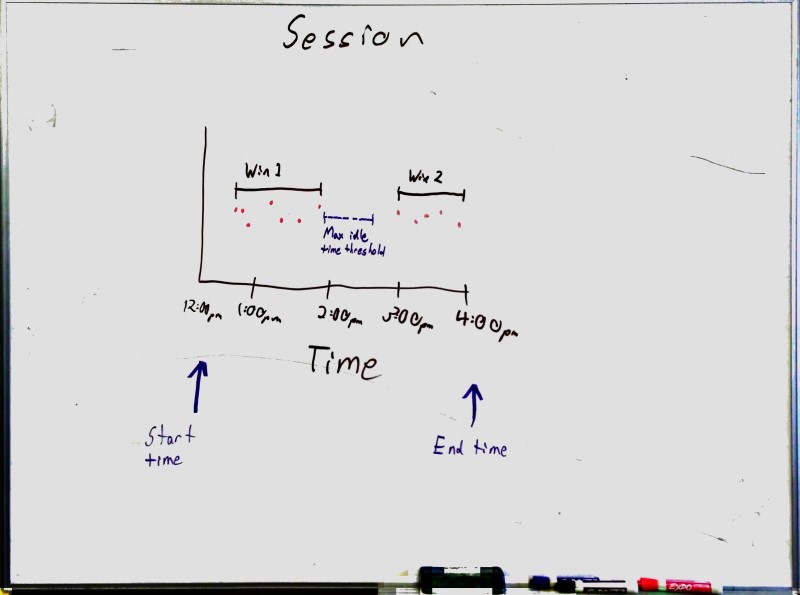 Session
Win 1
Win 2
Max idle
time threshold
12:00pm 1:00pm 2:00pm 3:00pm 4:00pm
Time
Start
time
End time
EXPO